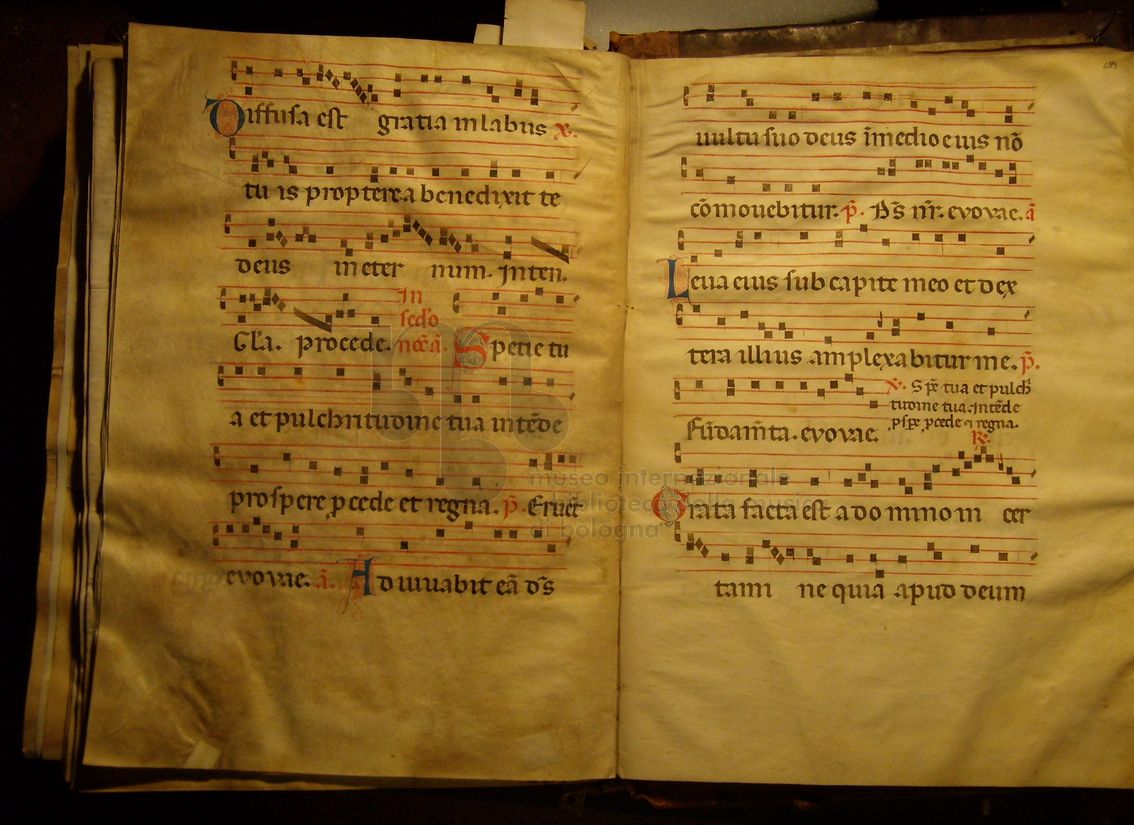 Diffusa est gratia in labiis ℣.
tuis propterea benedixit te
deus in eter num. Inten.
Gl'a. procede. In scd'o noc̄. a̅. Specie tu
a et pulchritudine tua intēde
prospere pcede et regna. p̄. Eruct
evovae. a̅. Adiuvabit eā d̄s
vultu suo deus ī medio eius nō
cōmovebitur. p̄. D̄s nr̄. evovae. a̅
Leva eius sub capite meo et dex
tera illius amplexabitur me. p̄.
℣. Spē tua et pulch̄
tudine tua. intēde
pspe pcede et regna.
Fūdam̄ta. evovae. ℟.
Grata facta est a domino in cer
tami ne quia apud deum
museo internazionale
e biblioteca della musica
di bologna